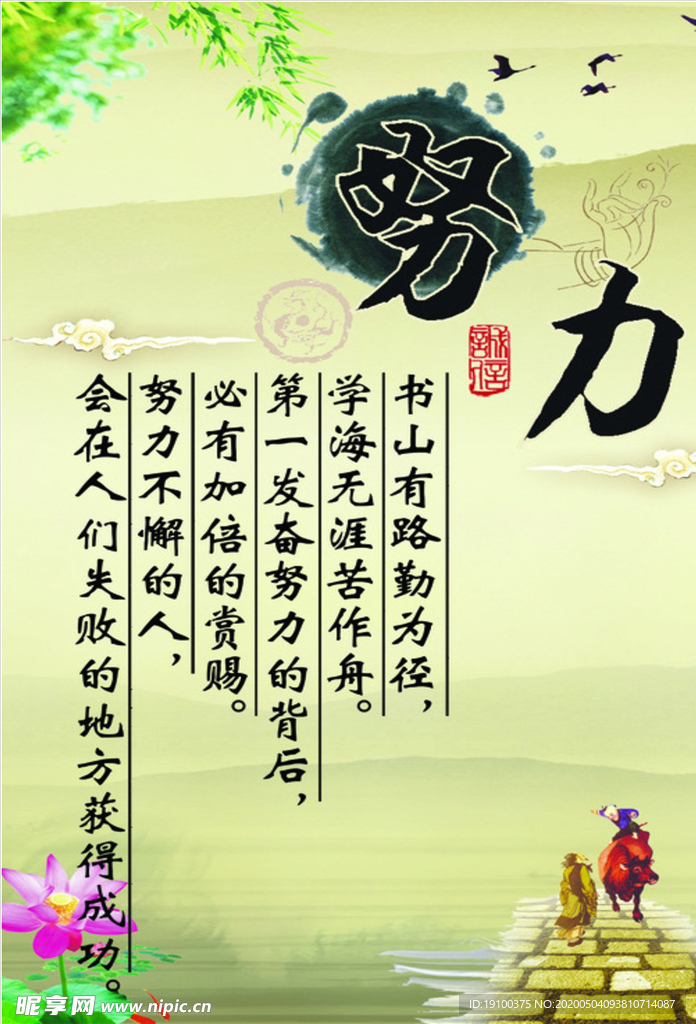 努力
誠信
书山有路勤为径，
学海无涯苦作舟。
第一发奋努力的背后，
必有加倍的赏赐。
努力不懈的人，
会在人们失败的地方获得成功。
昵享网 www.nipic.cn
ID:19100375 NO:20200504093810714087